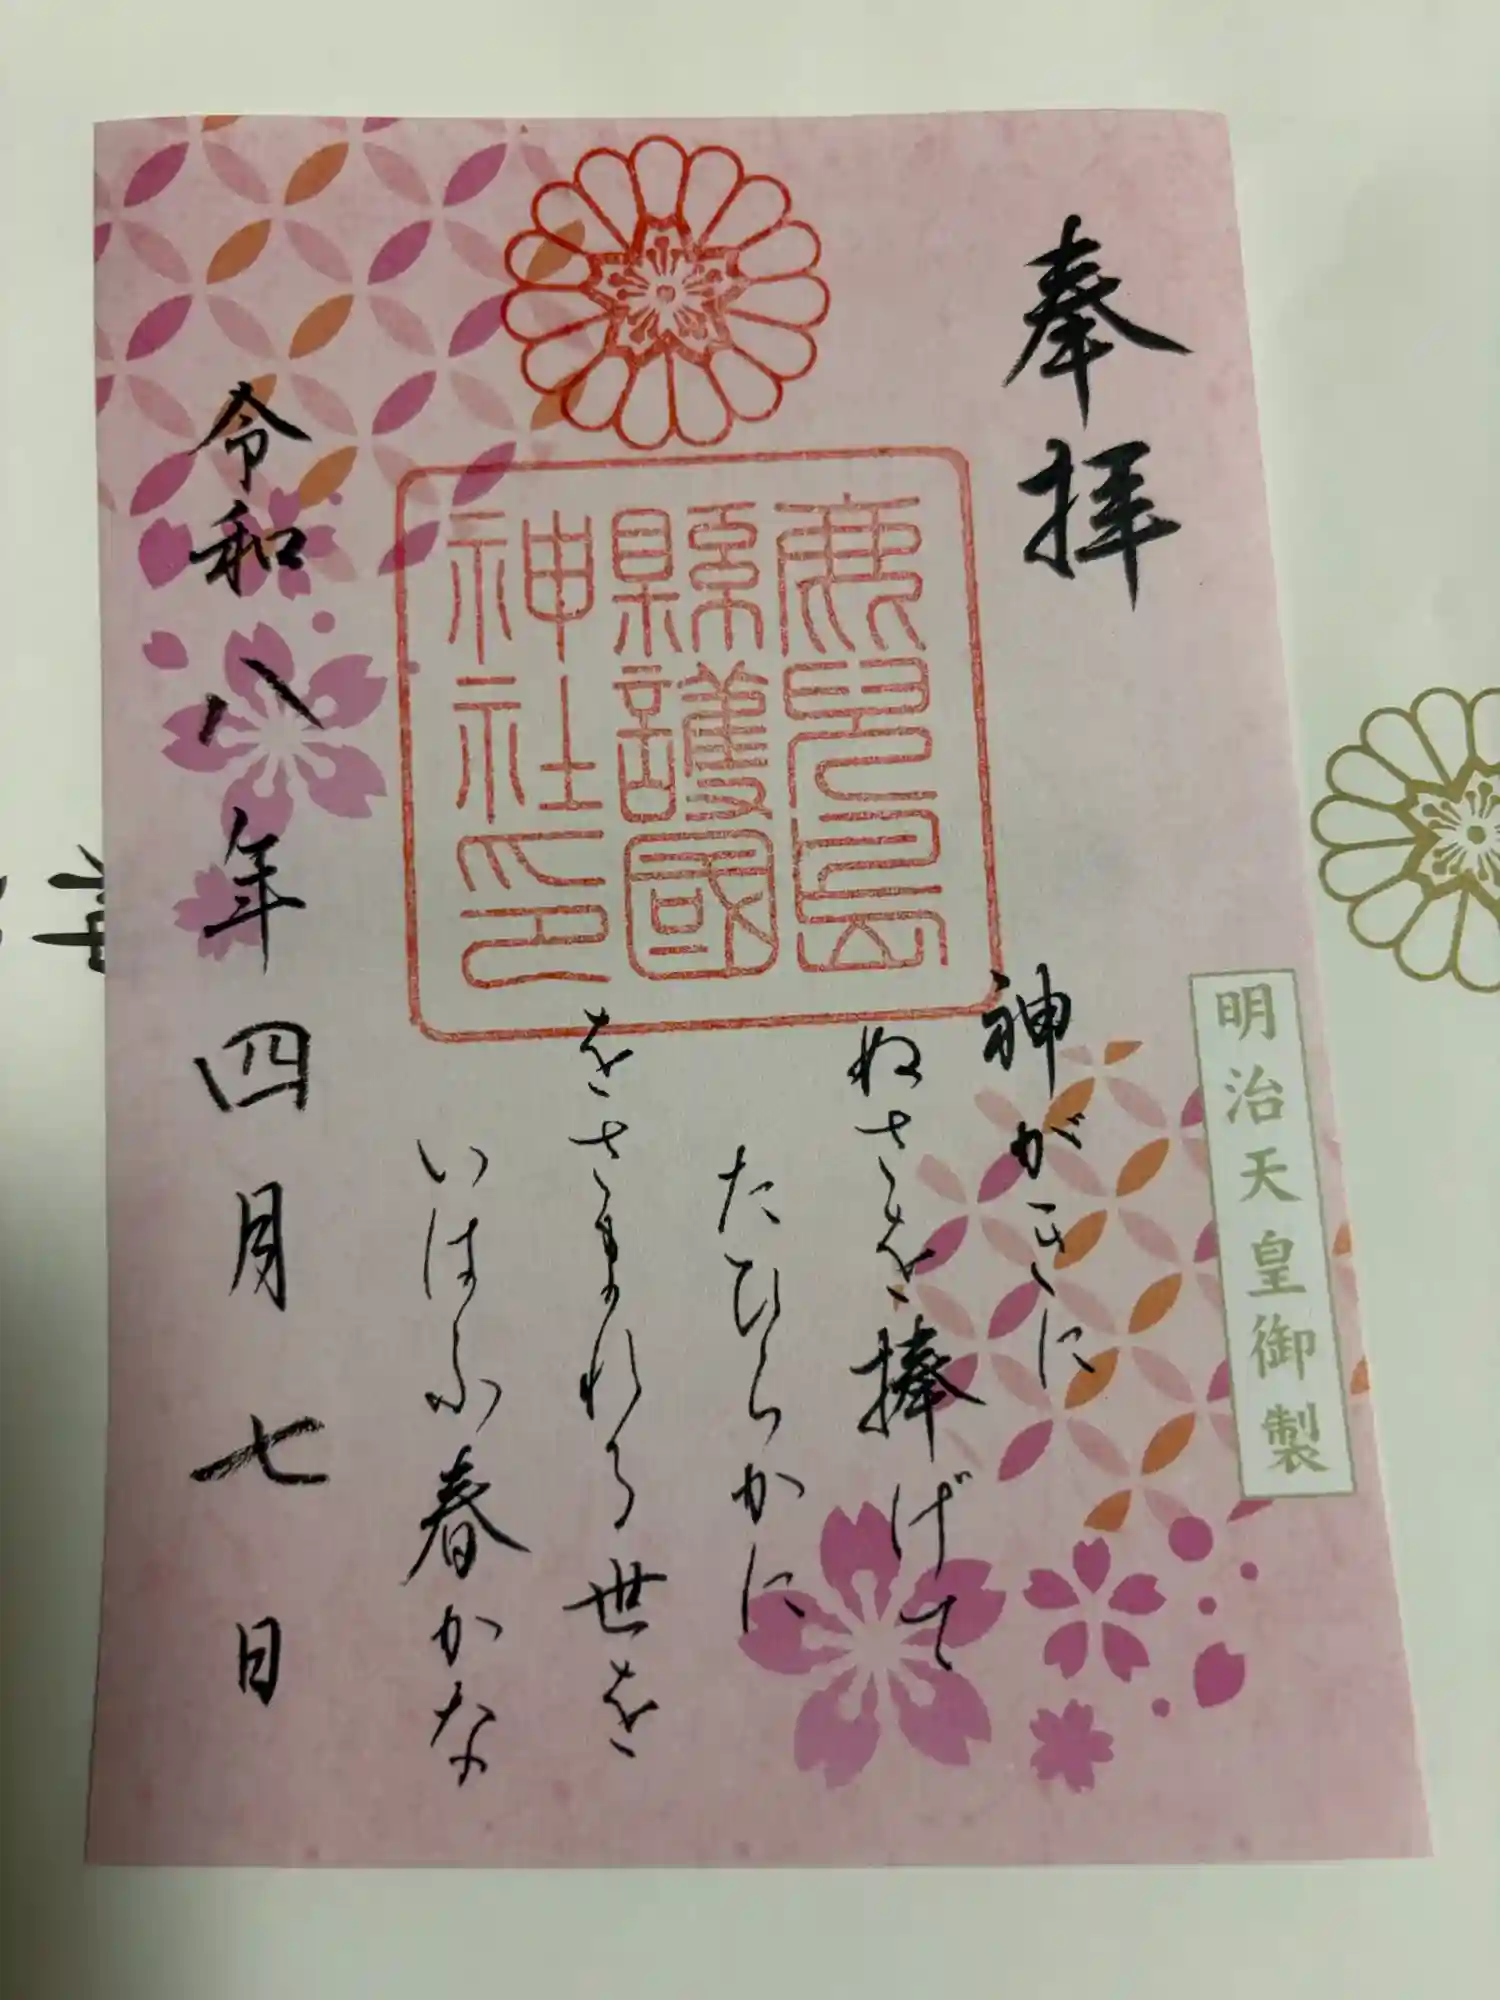 奉拝
明治天皇御製
神がきに
ぬさを捧げて
たひらかに
をさまれる世を
いはふ春かな
鹿児島
縣護國
神社印
令和八年四月七日